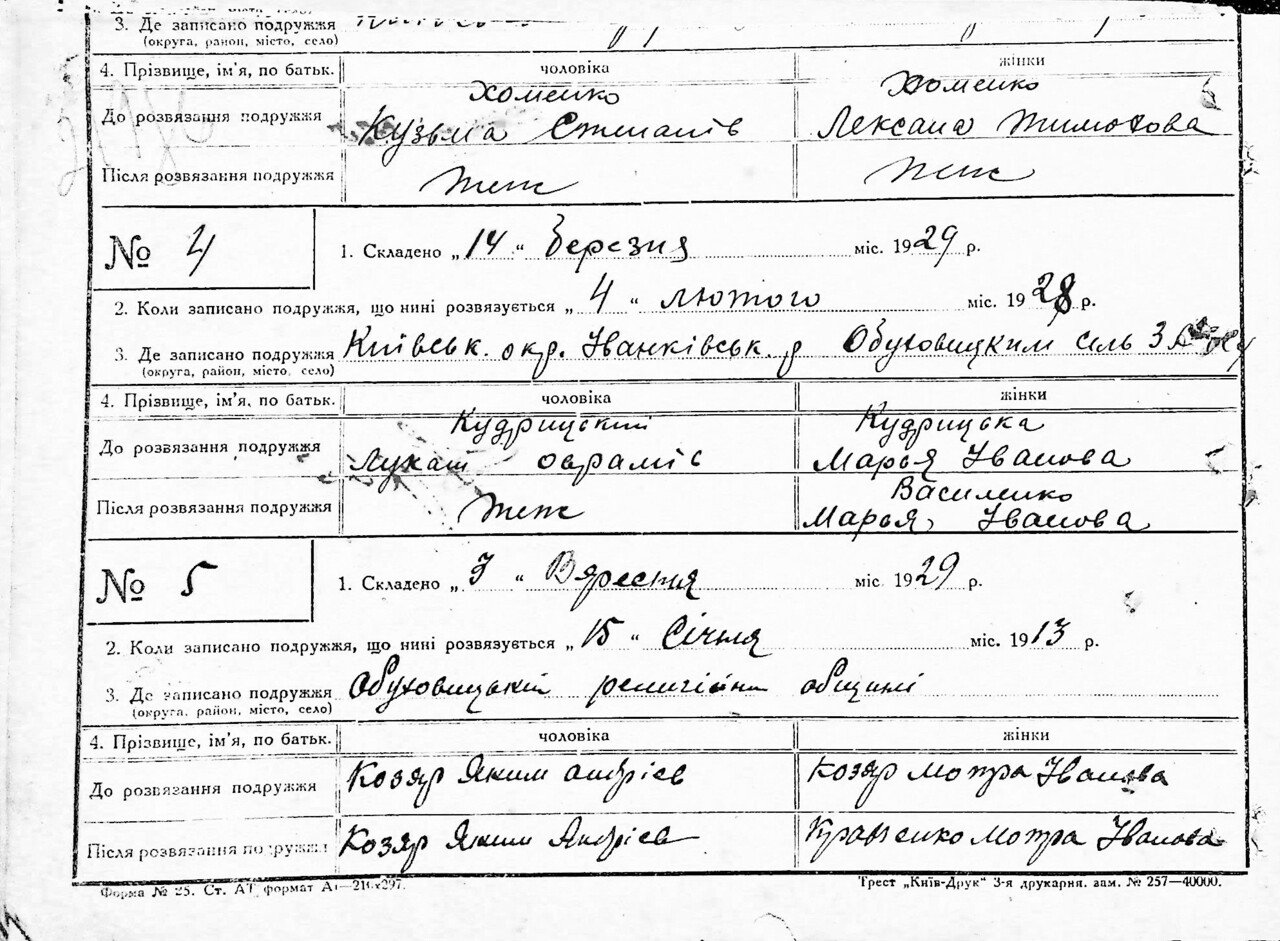 3. Де записано подружжя
(округа, район, місто, село)
4. Прізвище, ім'я, по батьк. чоловіка жінки
Хоменко Хоменко
До розвязання подружжя Кузьма Степанів Лексана Тимохова
Після розвязання подружжя теж теж
№ 4 1. Складено „14“ Березня міс. 1929 р.
2. Коли записано подружжя, що нині розвязується „4“ лютого міс. 1928 р.
3. Де записано подружжя Київськ. окр. Іванківськ. р Обуховицким сель
(округа, район, місто, село)
4. Прізвище, ім'я, по батьк. чоловіка жінки
Кудрицький Кудрицька
До розвязання подружжя Лукаш Оврамів Марья Іванова
Василенко
Після розвязання подружжя теж Марья Іванова
№ 5 1. Складено „3“ Вяресня міс. 1929 р.
2. Коли записано подружжя, що нині розвязується „15“ Січня міс. 1913 р.
3. Де записано подружжя Обуховицькій религійни общині
(округа, район, місто, село)
4. Прізвище, ім'я, по батьк. чоловіка жінки
До розвязання подружжя Козяр Яким Андрієв Козяр Мотра Іванова
Після розвязання подружжя Козяр Яким Андрієв Кравченко Мотра Іванова
Форма № 25. Ст. А1 формат А4—210х297. Трест „Київ-Друк“ 3-я друкарня. зам. № 257—40000.